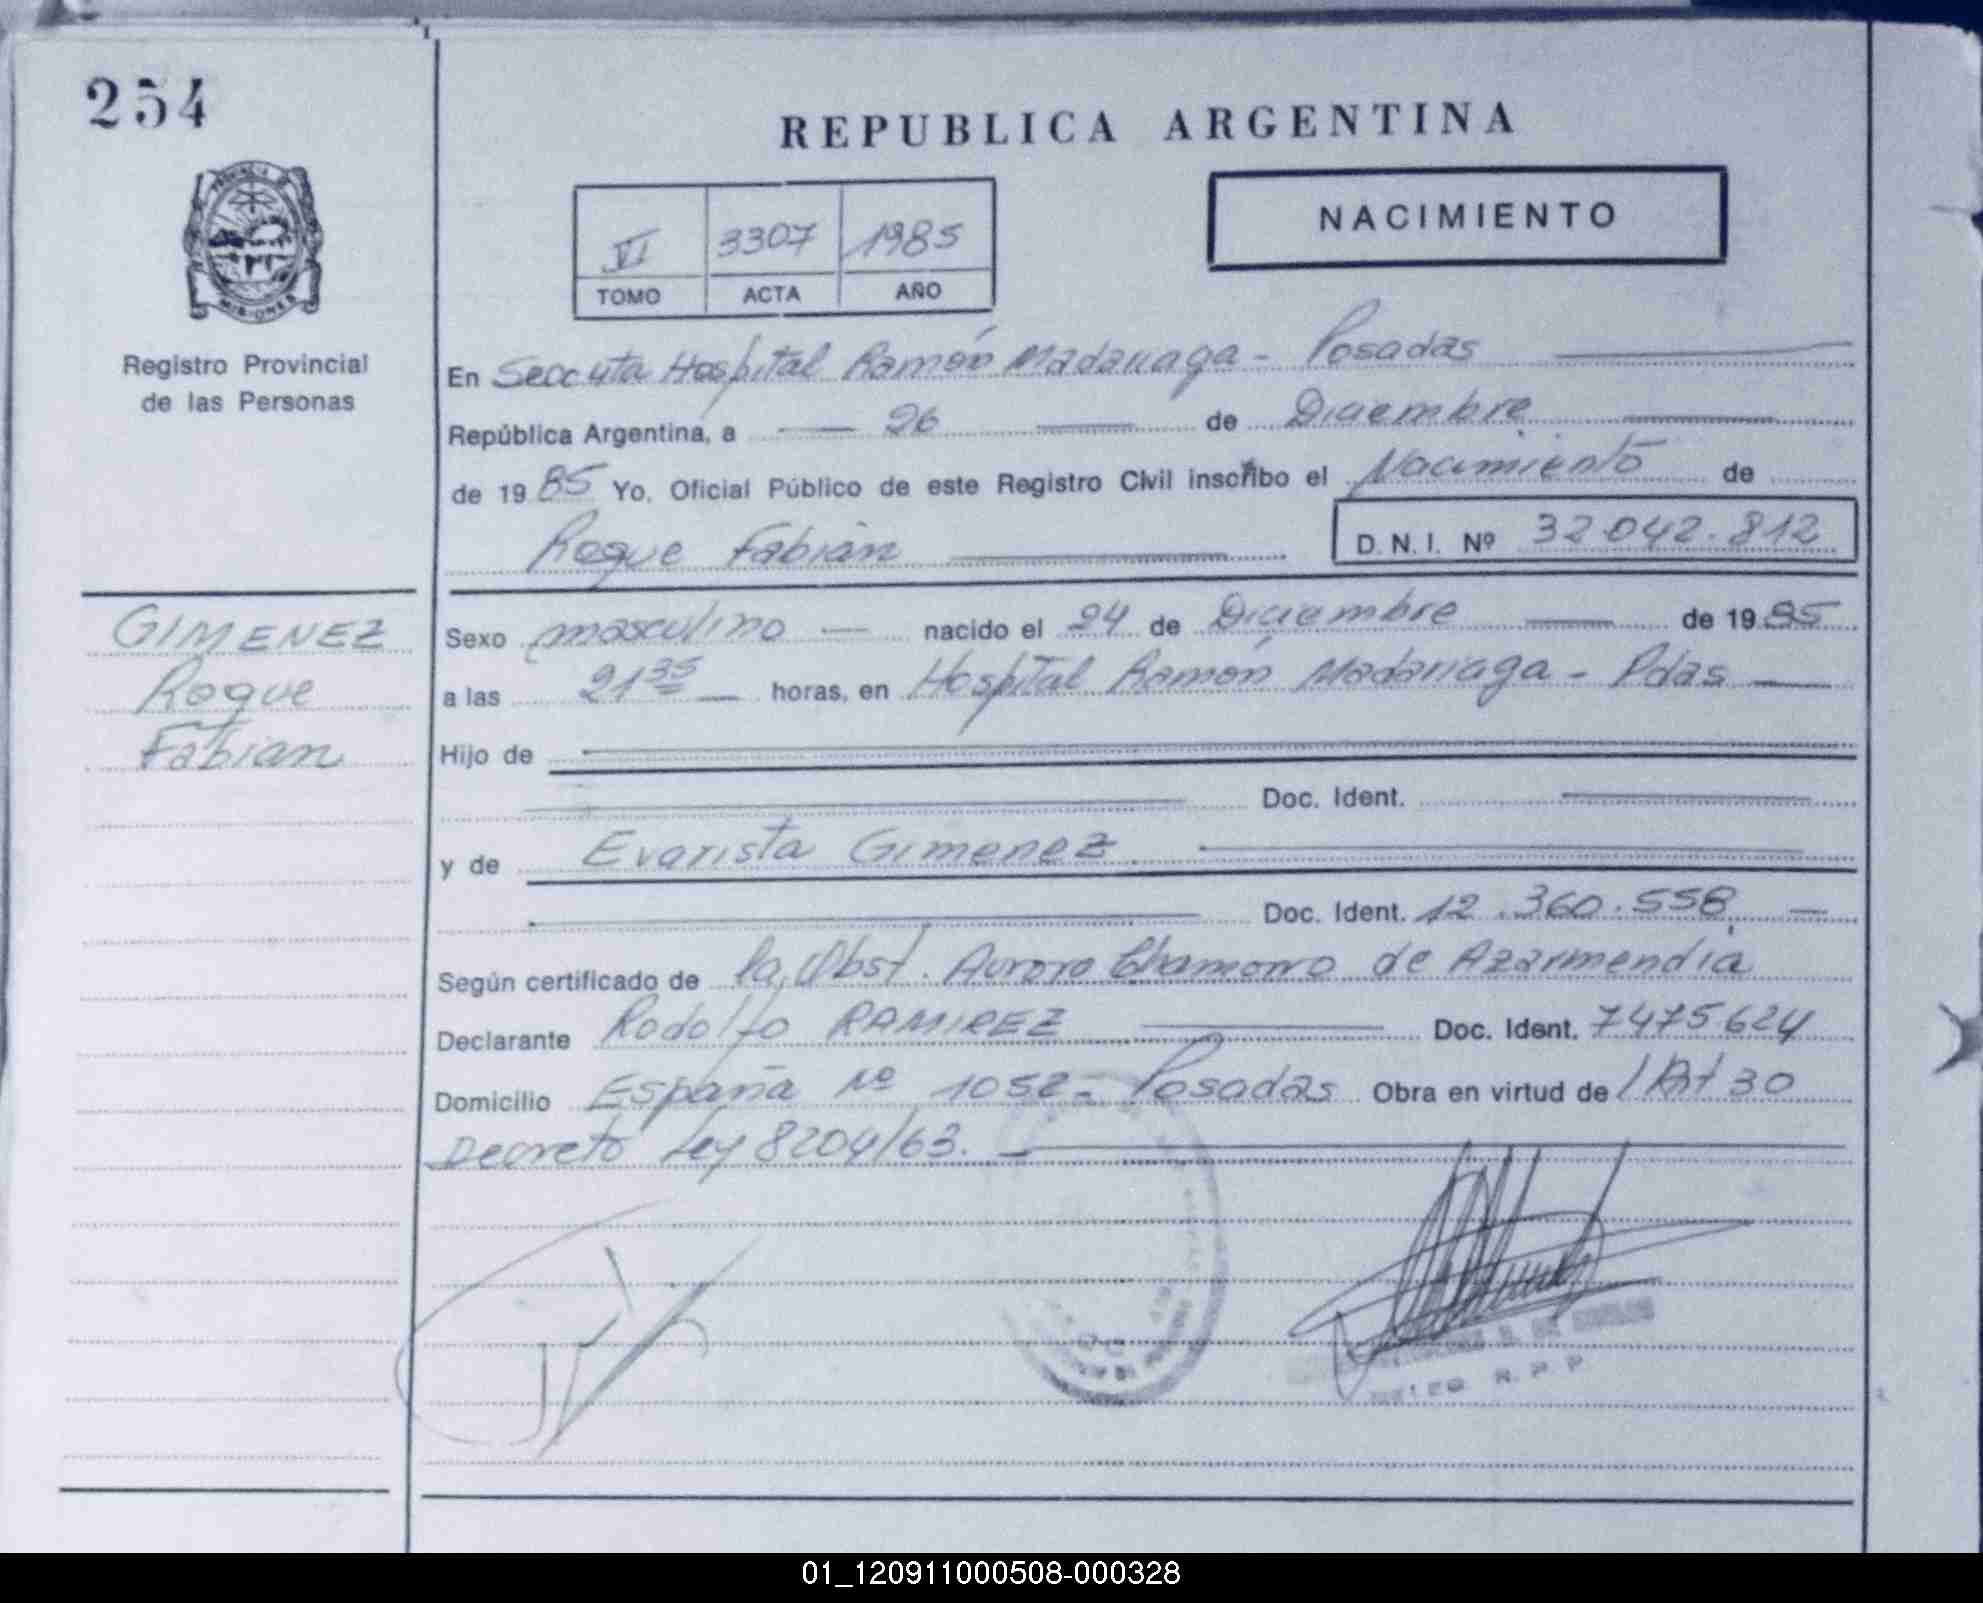 254
REPUBLICA ARGENTINA
NACIMIENTO
VI 3307 1985
TOMO ACTA AÑO
PROVINCIA DE
MISIONES
Registro Provincial
de las Personas
En Seccuta Hospital Ramón Madariaga - Posadas
República Argentina, a 26 de Diciembre
de 1985 Yo, Oficial Público de este Registro Civil inscribo el Nacimiento de
Roque Fabián D. N. I. Nº 32.042.812
GIMENEZ
Roque
Fabian
Sexo masculino nacido el 24 de Diciembre de 1985
a las 21 35 horas, en Hospital Ramón Madariaga - Pdas
Hijo de
Doc. Ident.
y de Evarista Gimenez
Doc. Ident. 12.360.558
Según certificado de la Obst. Aurora Chamorro de Azarmendia
Declarante Rodolfo RAMIREZ Doc. Ident. 7475624
Domicilio España Nº 1052 - Posadas Obra en virtud de l Art 30
Decreto Ley 8204/63.
R. P. P.
01_120911000508-000328